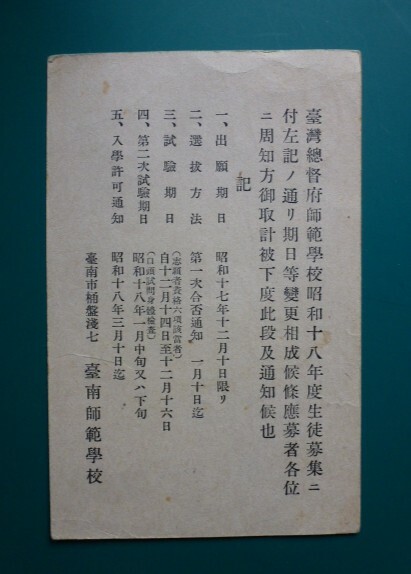 臺灣總督府師範學校昭和十八年度生徒募集ニ
付左記ノ通リ期日等變更相成候條應募者各位
ニ周知方御取計被下度此段及通知候也
記
一、出願期日 昭和十七年十二月十日限リ
二、選拔方法 第一次合否通知 一月十日迄
(志願者表將六項該當者)
三、試驗期日 自十二月十四日至十二月十六日
(口頭試問身體檢査)
四、第二次試驗期日 昭和十八年一月中旬又ハ下旬
五、入學許可通知 昭和十八年三月十日迄
臺南市桶盤淺七 臺南師範學校